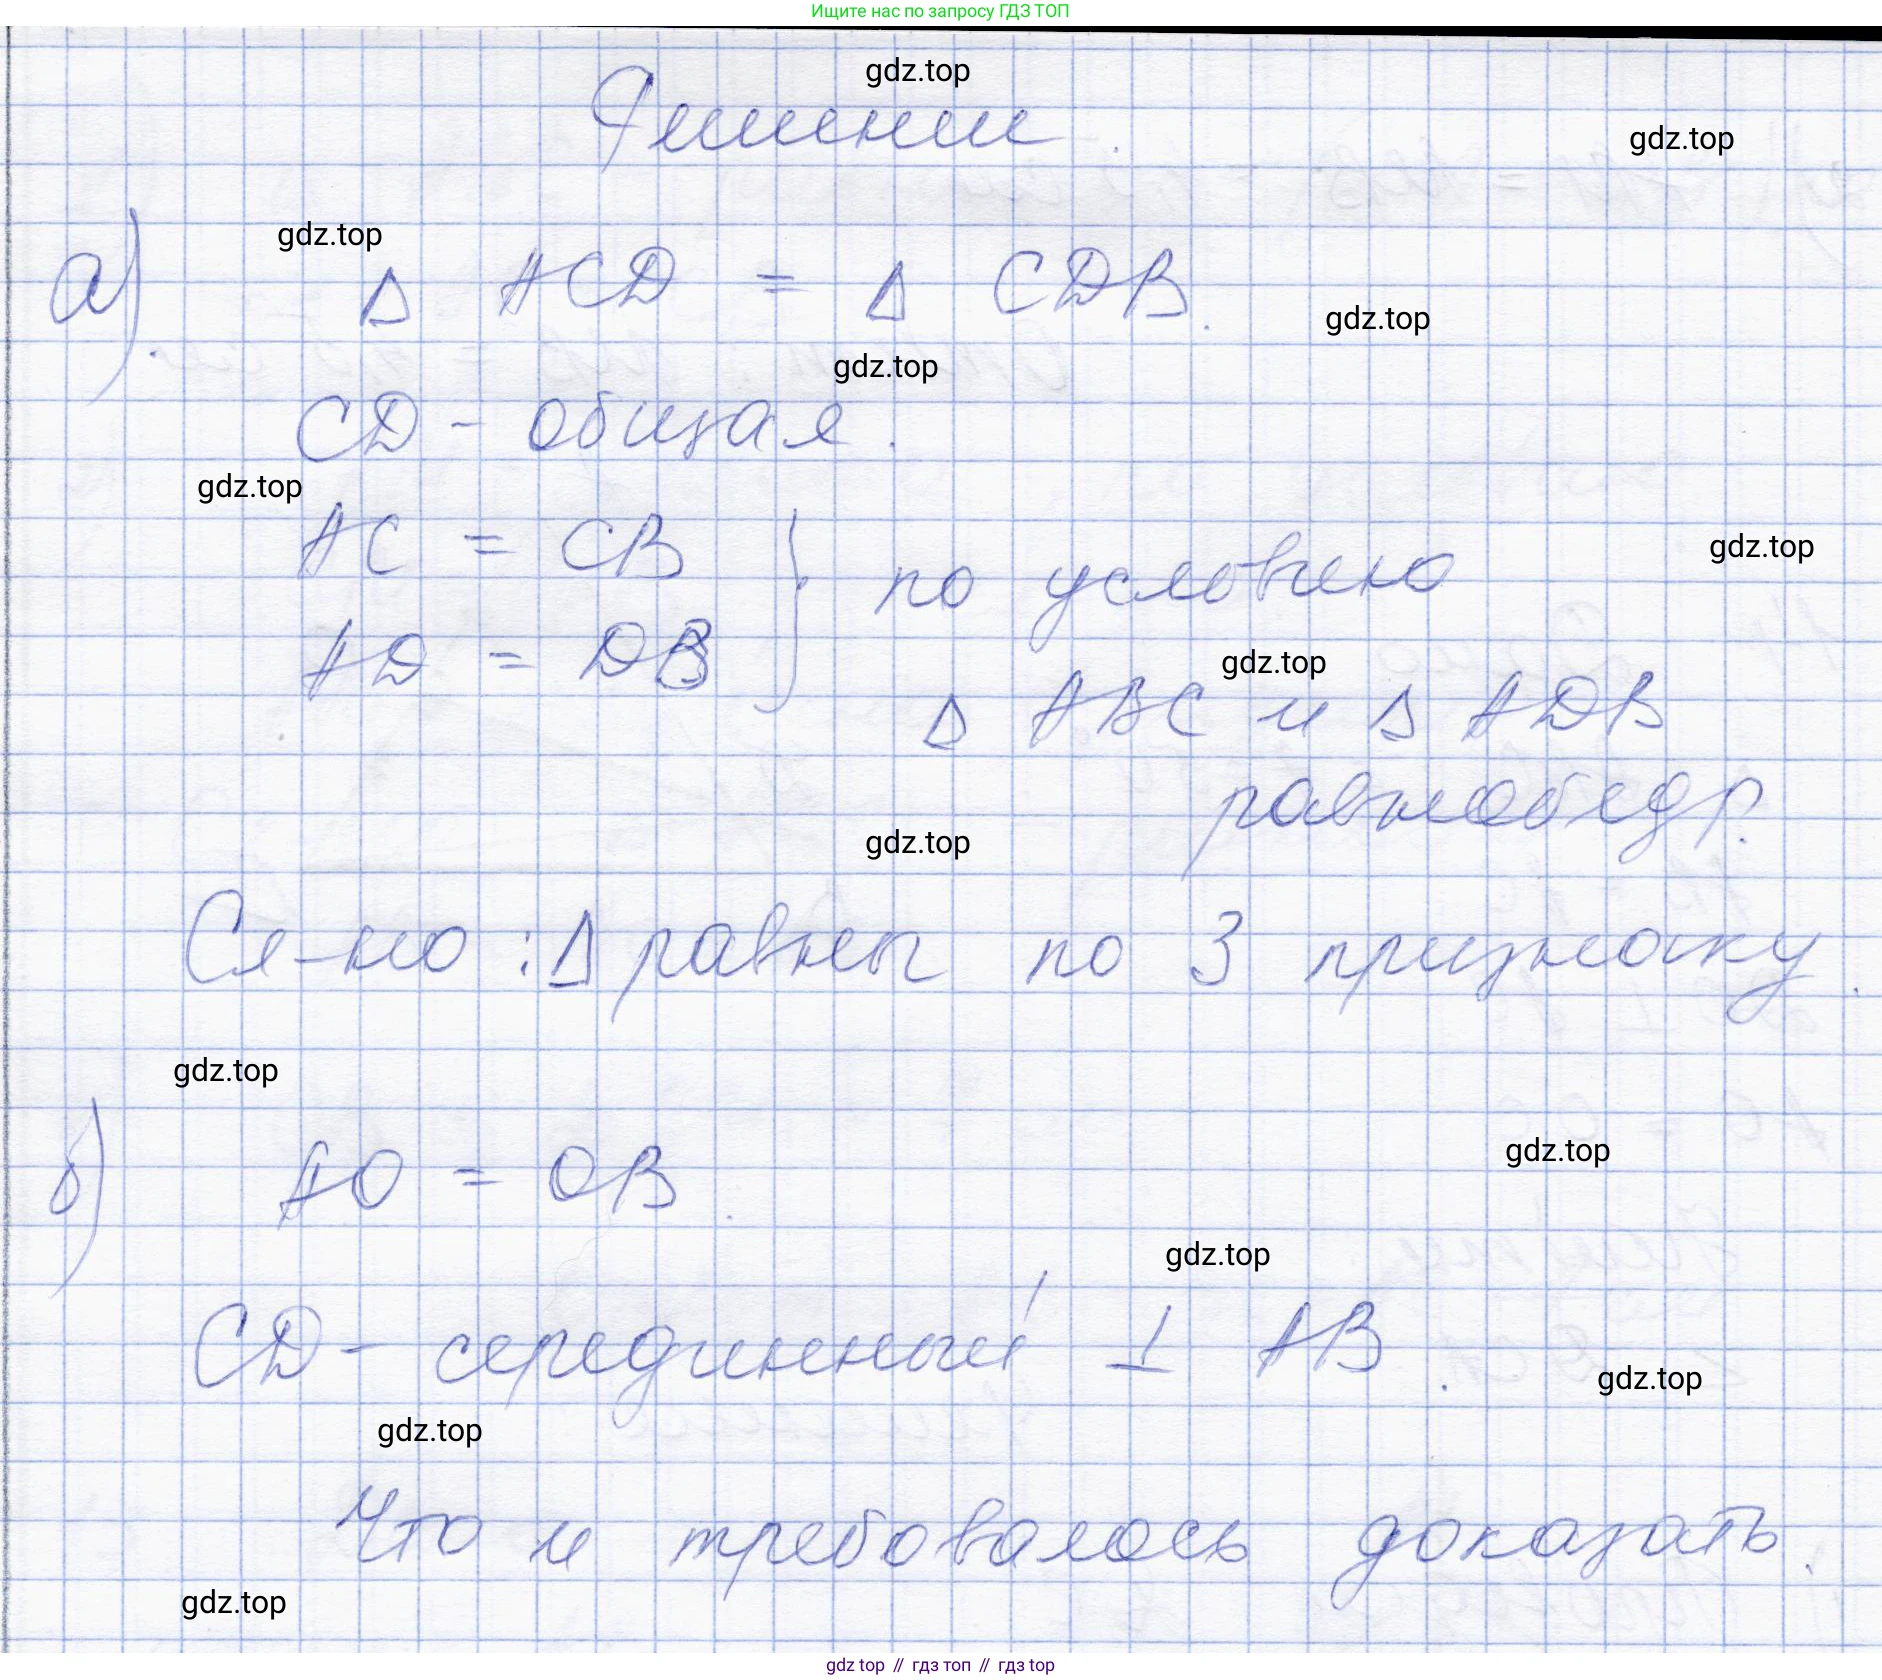 Ищите нас по запросу ГДЗ ТОП
gdz.top
Решение.
gdz.top
gdz.top
а). Δ ACD = Δ CDB.
gdz.top
gdz.top
CD - общая.
gdz.top
AC = CB } по условию
gdz.top
AD = DB
gdz.top
Δ ABC и Δ ADB
равнобедр.
gdz.top
Сл-но : Δ равны по 3 признаку.
gdz.top
б) AO = OB.
gdz.top
gdz.top
CD - серединный ⊥ AB.
gdz.top
gdz.top
Что и требовалось доказать.
gdz.top
gdz top // гдз топ // гдз top